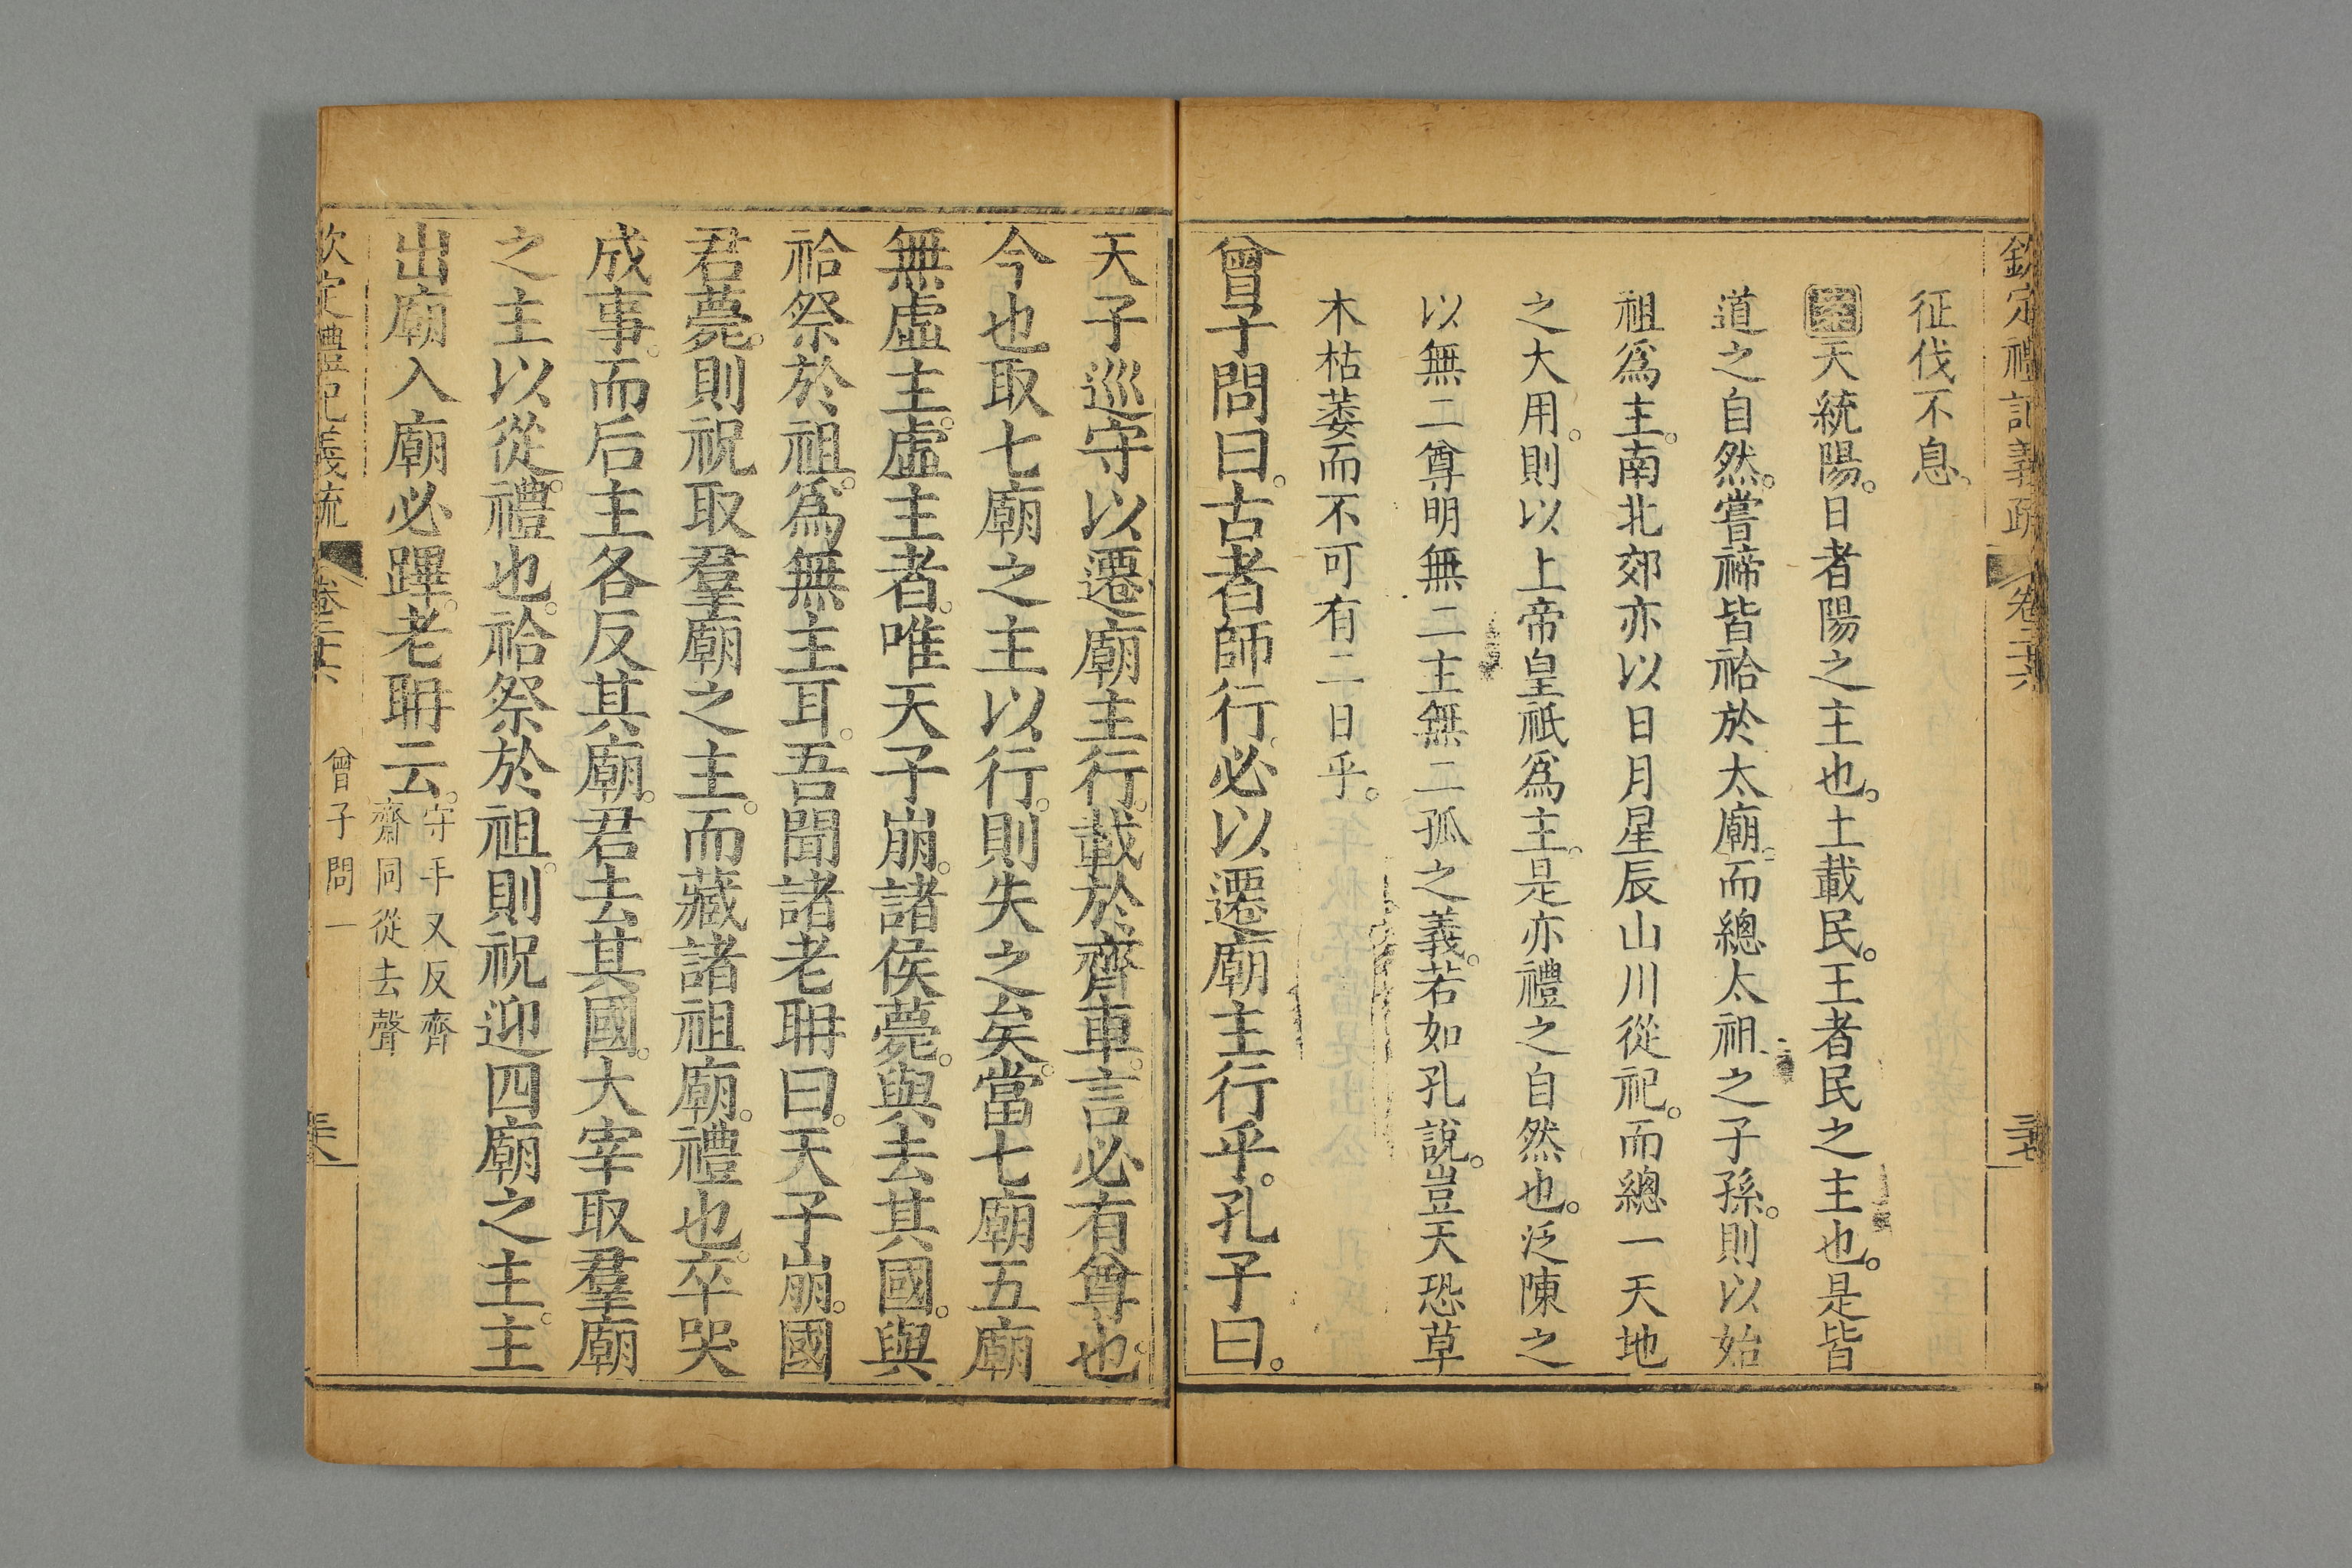 欽定禮記義疏 卷二十六 三七
征伐不息。
天統陽。日者陽之主也。土載民。王者民之主也。是皆
道之自然。嘗禘皆祫於太廟。而總太祖之子孫。則以始
祖爲主。南北郊亦以日月星辰山川從祀。而總一天地
之大用。則以上帝皇祇爲主。是亦禮之自然也。泛陳之
以無二尊明無二主無二孤之義。若如孔說。豈天恐草
木枯萎而不可有二日乎。
曾子問曰。古者師行。必以遷廟主行乎。孔子曰。
天子巡守以遷廟主行。載於齊車。言必有尊也。
今也取七廟之主以行。則失之矣。當七廟五廟
無虛主。虛主者。唯天子崩。諸侯薨。與去其國。與
祫祭於祖。爲無主耳。吾聞諸老聃曰。天子崩。國
君薨。則祝取羣廟之主。而藏諸祖廟。禮也。卒哭
成事。而后主各反其廟。君去其國。大宰取羣廟
之主以從。禮也。祫祭於祖。則祝迎四廟之主。主
出廟入廟必蹕。老聃云。
守手又反齊
齋同從去聲
欽定禮記義疏 卷二十六 曾子問一 三六